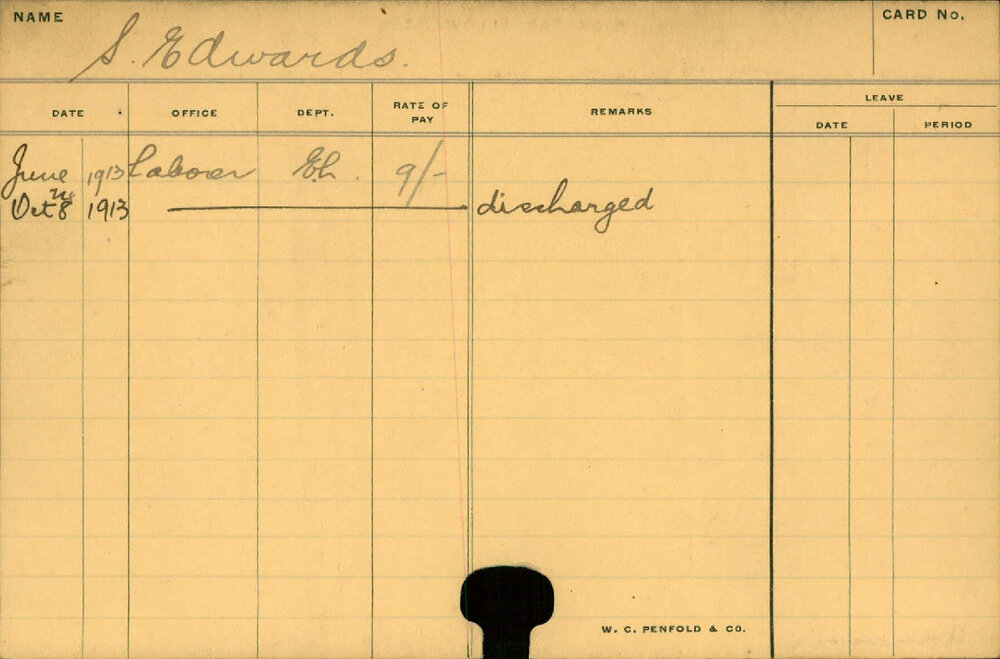 NAME
CARD No.
S. Edwards.
DATE OFFICE DEPT. RATE OF PAY REMARKS LEAVE
DATE PERIOD
June 1913 Labourer 9/-
Oct 8 1913 discharged
W. C. PENFOLD & CO.